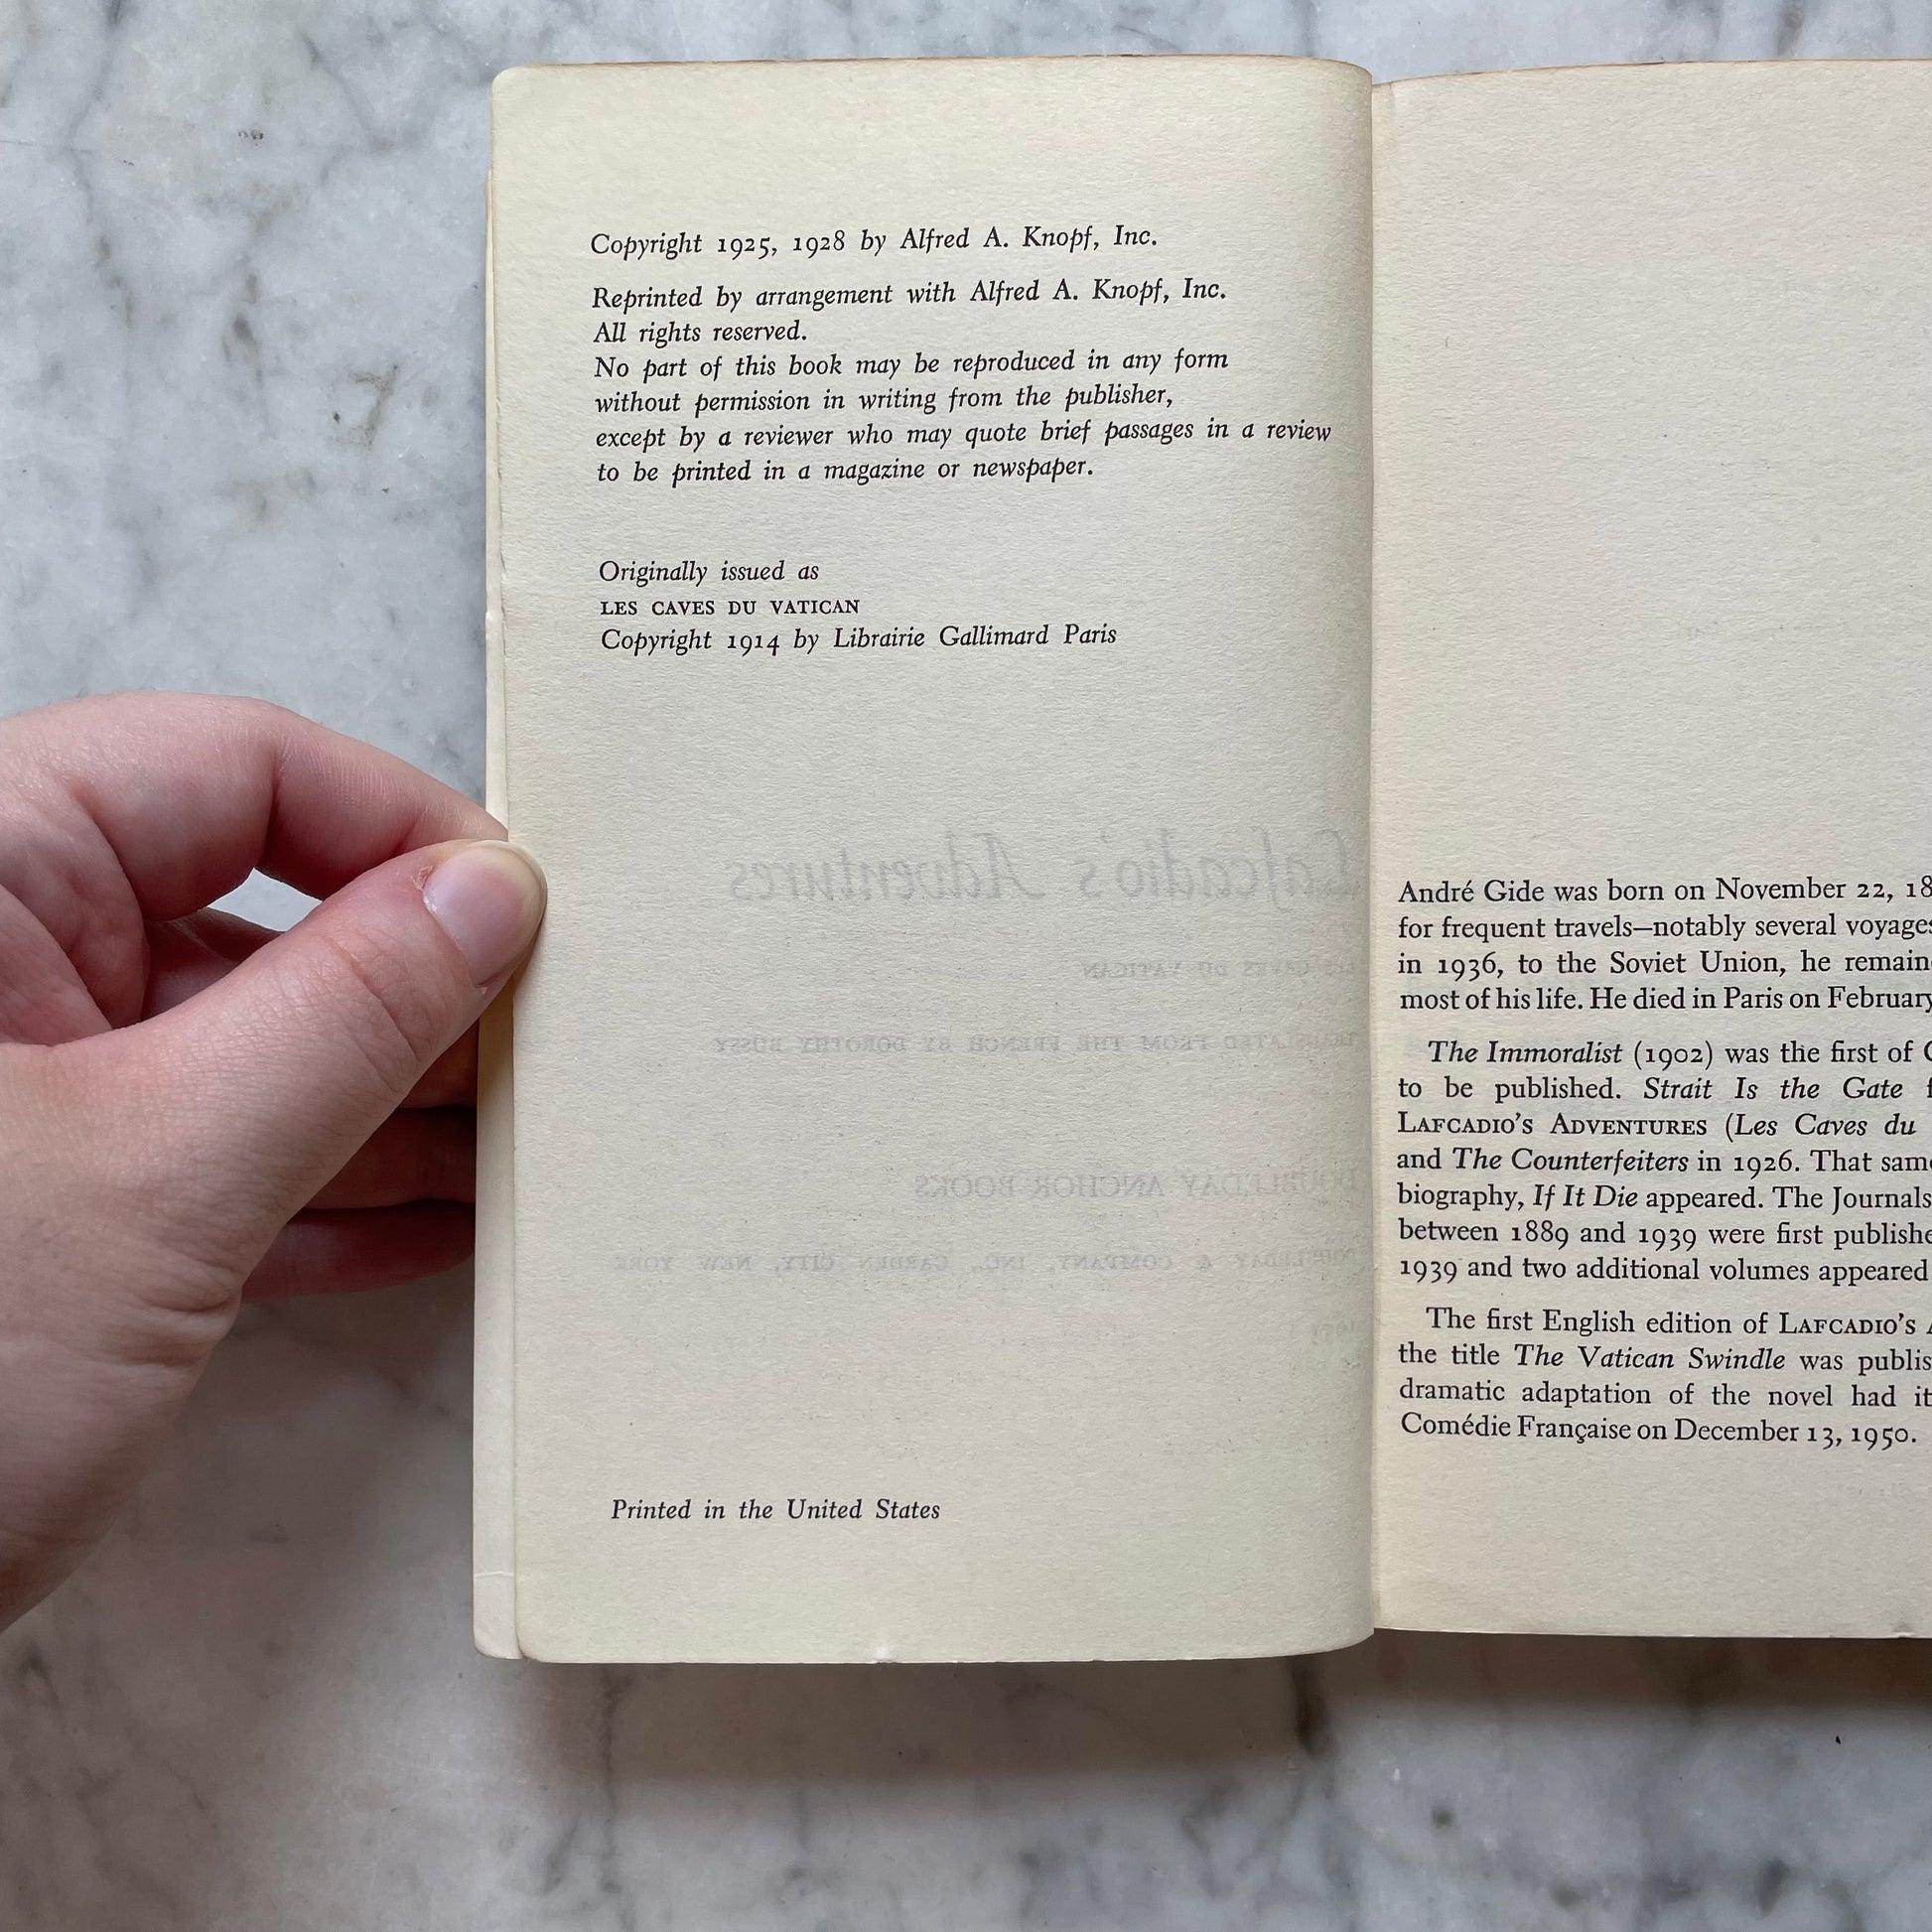 Copyright 1925, 1928 by Alfred A. Knopf, Inc.
Reprinted by arrangement with Alfred A. Knopf, Inc.
All rights reserved.
No part of this book may be reproduced in any form
without permission in writing from the publisher,
except by a reviewer who may quote brief passages in a review
to be printed in a magazine or newspaper.
Originally issued as
LES CAVES DU VATICAN
Copyright 1914 by Librairie Gallimard Paris
Lafcadio's Adventures
LES CAVES DU VATICAN
TRANSLATED FROM THE FRENCH BY DOROTHY BUSSY
DOUBLEDAY ANCHOR BOOKS
DOUBLEDAY & COMPANY, INC., GARDEN CITY, NEW YORK
Printed in the United States
André Gide was born on November 22, 18
for frequent travels—notably several voyages
in 1936, to the Soviet Union, he remain
most of his life. He died in Paris on February
The Immoralist (1902) was the first of
to be published. Strait Is the Gate
LAFCADIO'S ADVENTURES (Les Caves du
and The Counterfeiters in 1926. That sam
biography, If It Die appeared. The Journals
between 1889 and 1939 were first publishe
1939 and two additional volumes appeared
The first English edition of LAFCADIO'S
the title The Vatican Swindle was publis
dramatic adaptation of the novel had it
Comédie Française on December 13, 1950.